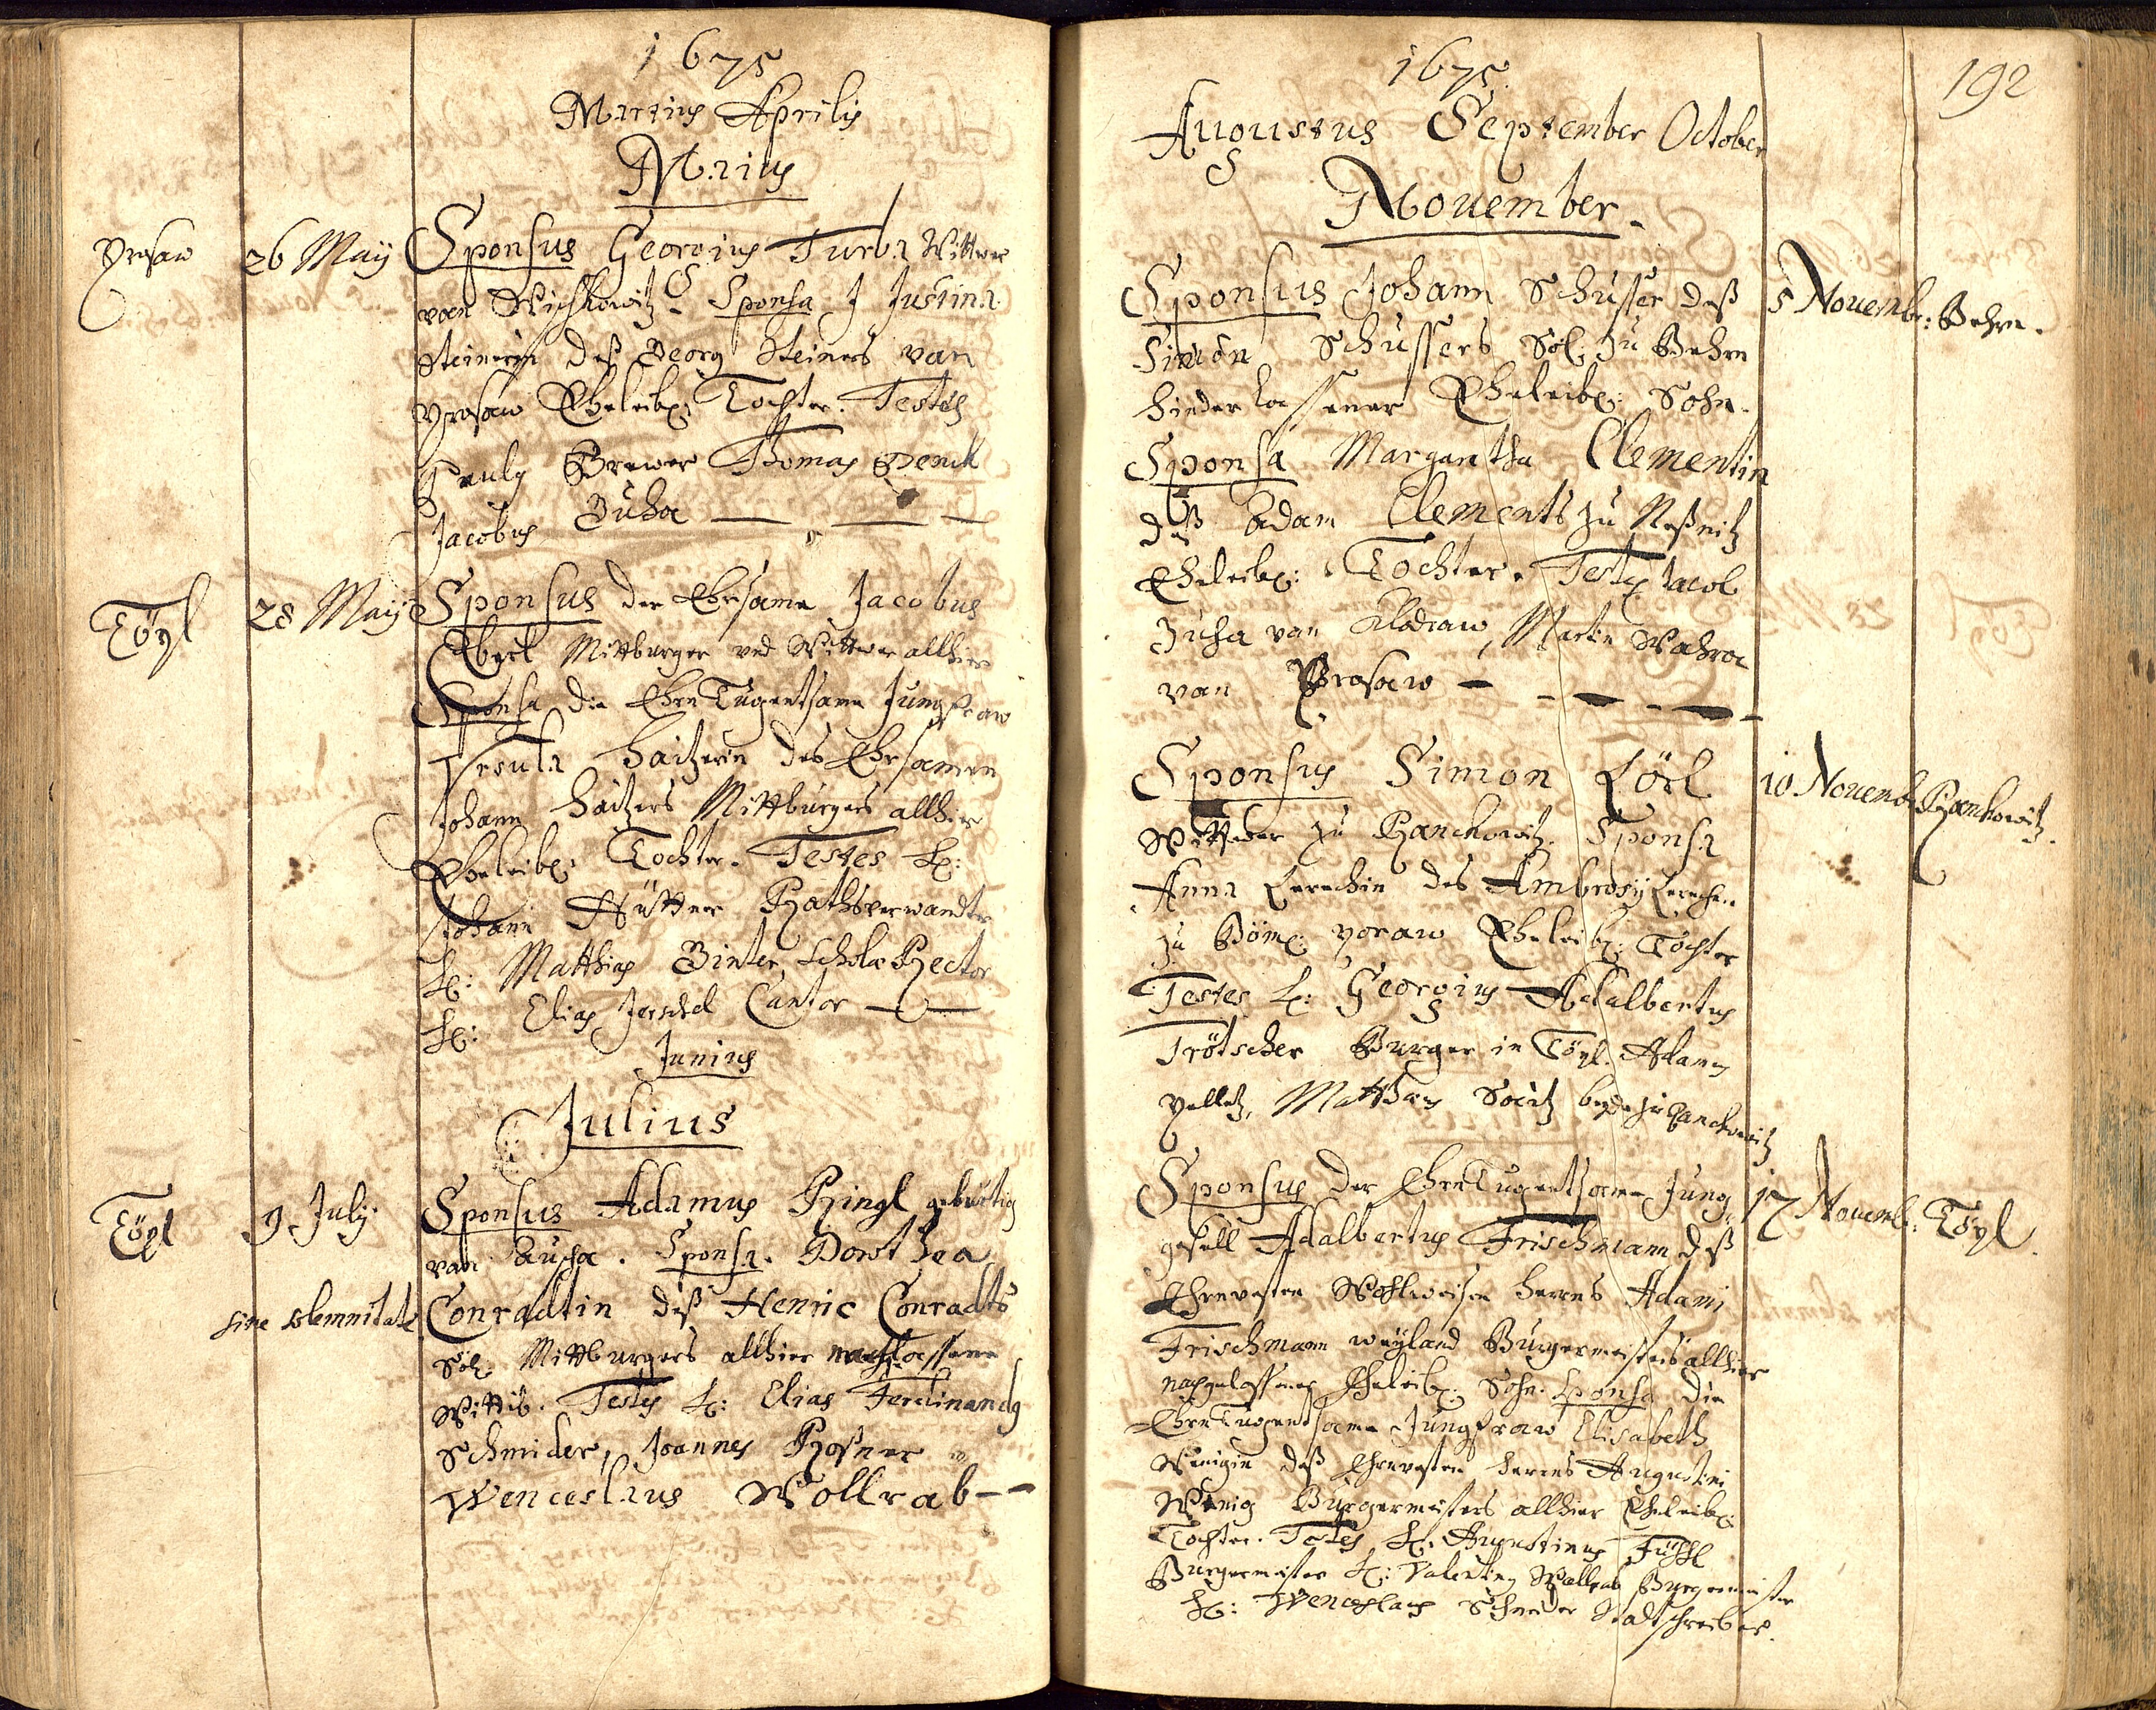 1675
Martius Aprilis
Maius
Prosaw 26 Maij Sponsus Georgius Turba Wittwer
von Wischkowitz. Sponsa J Justina
Steinerin deß Georg Steiners von
Prosaw Eheleibl: Tochter. Testes
Paulg Brewer Thomas Denck
Jacobus Zuha
Töpl 28 Maij Sponsus der Ehrsame Jacobus
Mittburger vnd Wittwer allhier
Sponsa die Ehrn Tugentsame Jungfraw
Vrsula Haitzerin des Ehrsamen
Johann Haitzers Mittburgers allhier
Eheleibl: Tochter. Testes H:
Johann Hüttner Rathsverwandter
H: Matthias Binter Scholæ Rector
H: Elias Jerschel Cantor
Junius
Julius
Töpl 9 July Sponsus Adamus Ringl gebürtig
von. Sponsa. Dorothea
sine solemnitate Conradtin deß Henric Conradts
Sel: Mittburgers allhier nachlassene
Wittib. Testes H: Elias Ferdinandg
Schmider, Joannes Rosner
Wenceslaus Wollrab
192
1675
Augustus September October
Nouember
Sponsus Johann Schusser deß 5 Nouembr:
Simon Schussers Sel: zu
hinderlassener Eheleibl: Sohn.
Sponsa Margaretha Clementin
deß Adam Clements zu
Eheleibl: Tochter. Testes Jacob
Zuha von Kladraw, Martin
von Prosaw
Sponsus Simon Lörl 10 Nouemb: Rankowitz.
Wittwer zu Ranckowitz. Sponsa
Anna Lerchin des Ambrosij Lerchen
zu Böm: Eheleibl: Tochter
Testes H: Georgius Adalbertus
Trötscher Burger in Töpl. Adam
Matthæus beyde zu Ranckowitz
Sponsus der Ehrn Tugentsame Jung 17 Nouemb: Töpl.
gesell Adalbertus Frischmann deß
Ehrnvesten Wohlweisen Herrns Adami
Frischmann weyland Burgermeisters allhier
nachgelassenes Eheleibl: Sohn. Sponsa die
Ehrn Tugentsame Jungfraw Elisabeth
Wenigin deß Ehrnvesten Herrns Augustini
Wenig Burgermeisters allhier Eheleibl:
Tochter. Testes H: Augustinus Füssl
Burgermeister H: Valentin Wollrab Burgermeister
H: Wenceslaus Schmider Stadtschreiber.